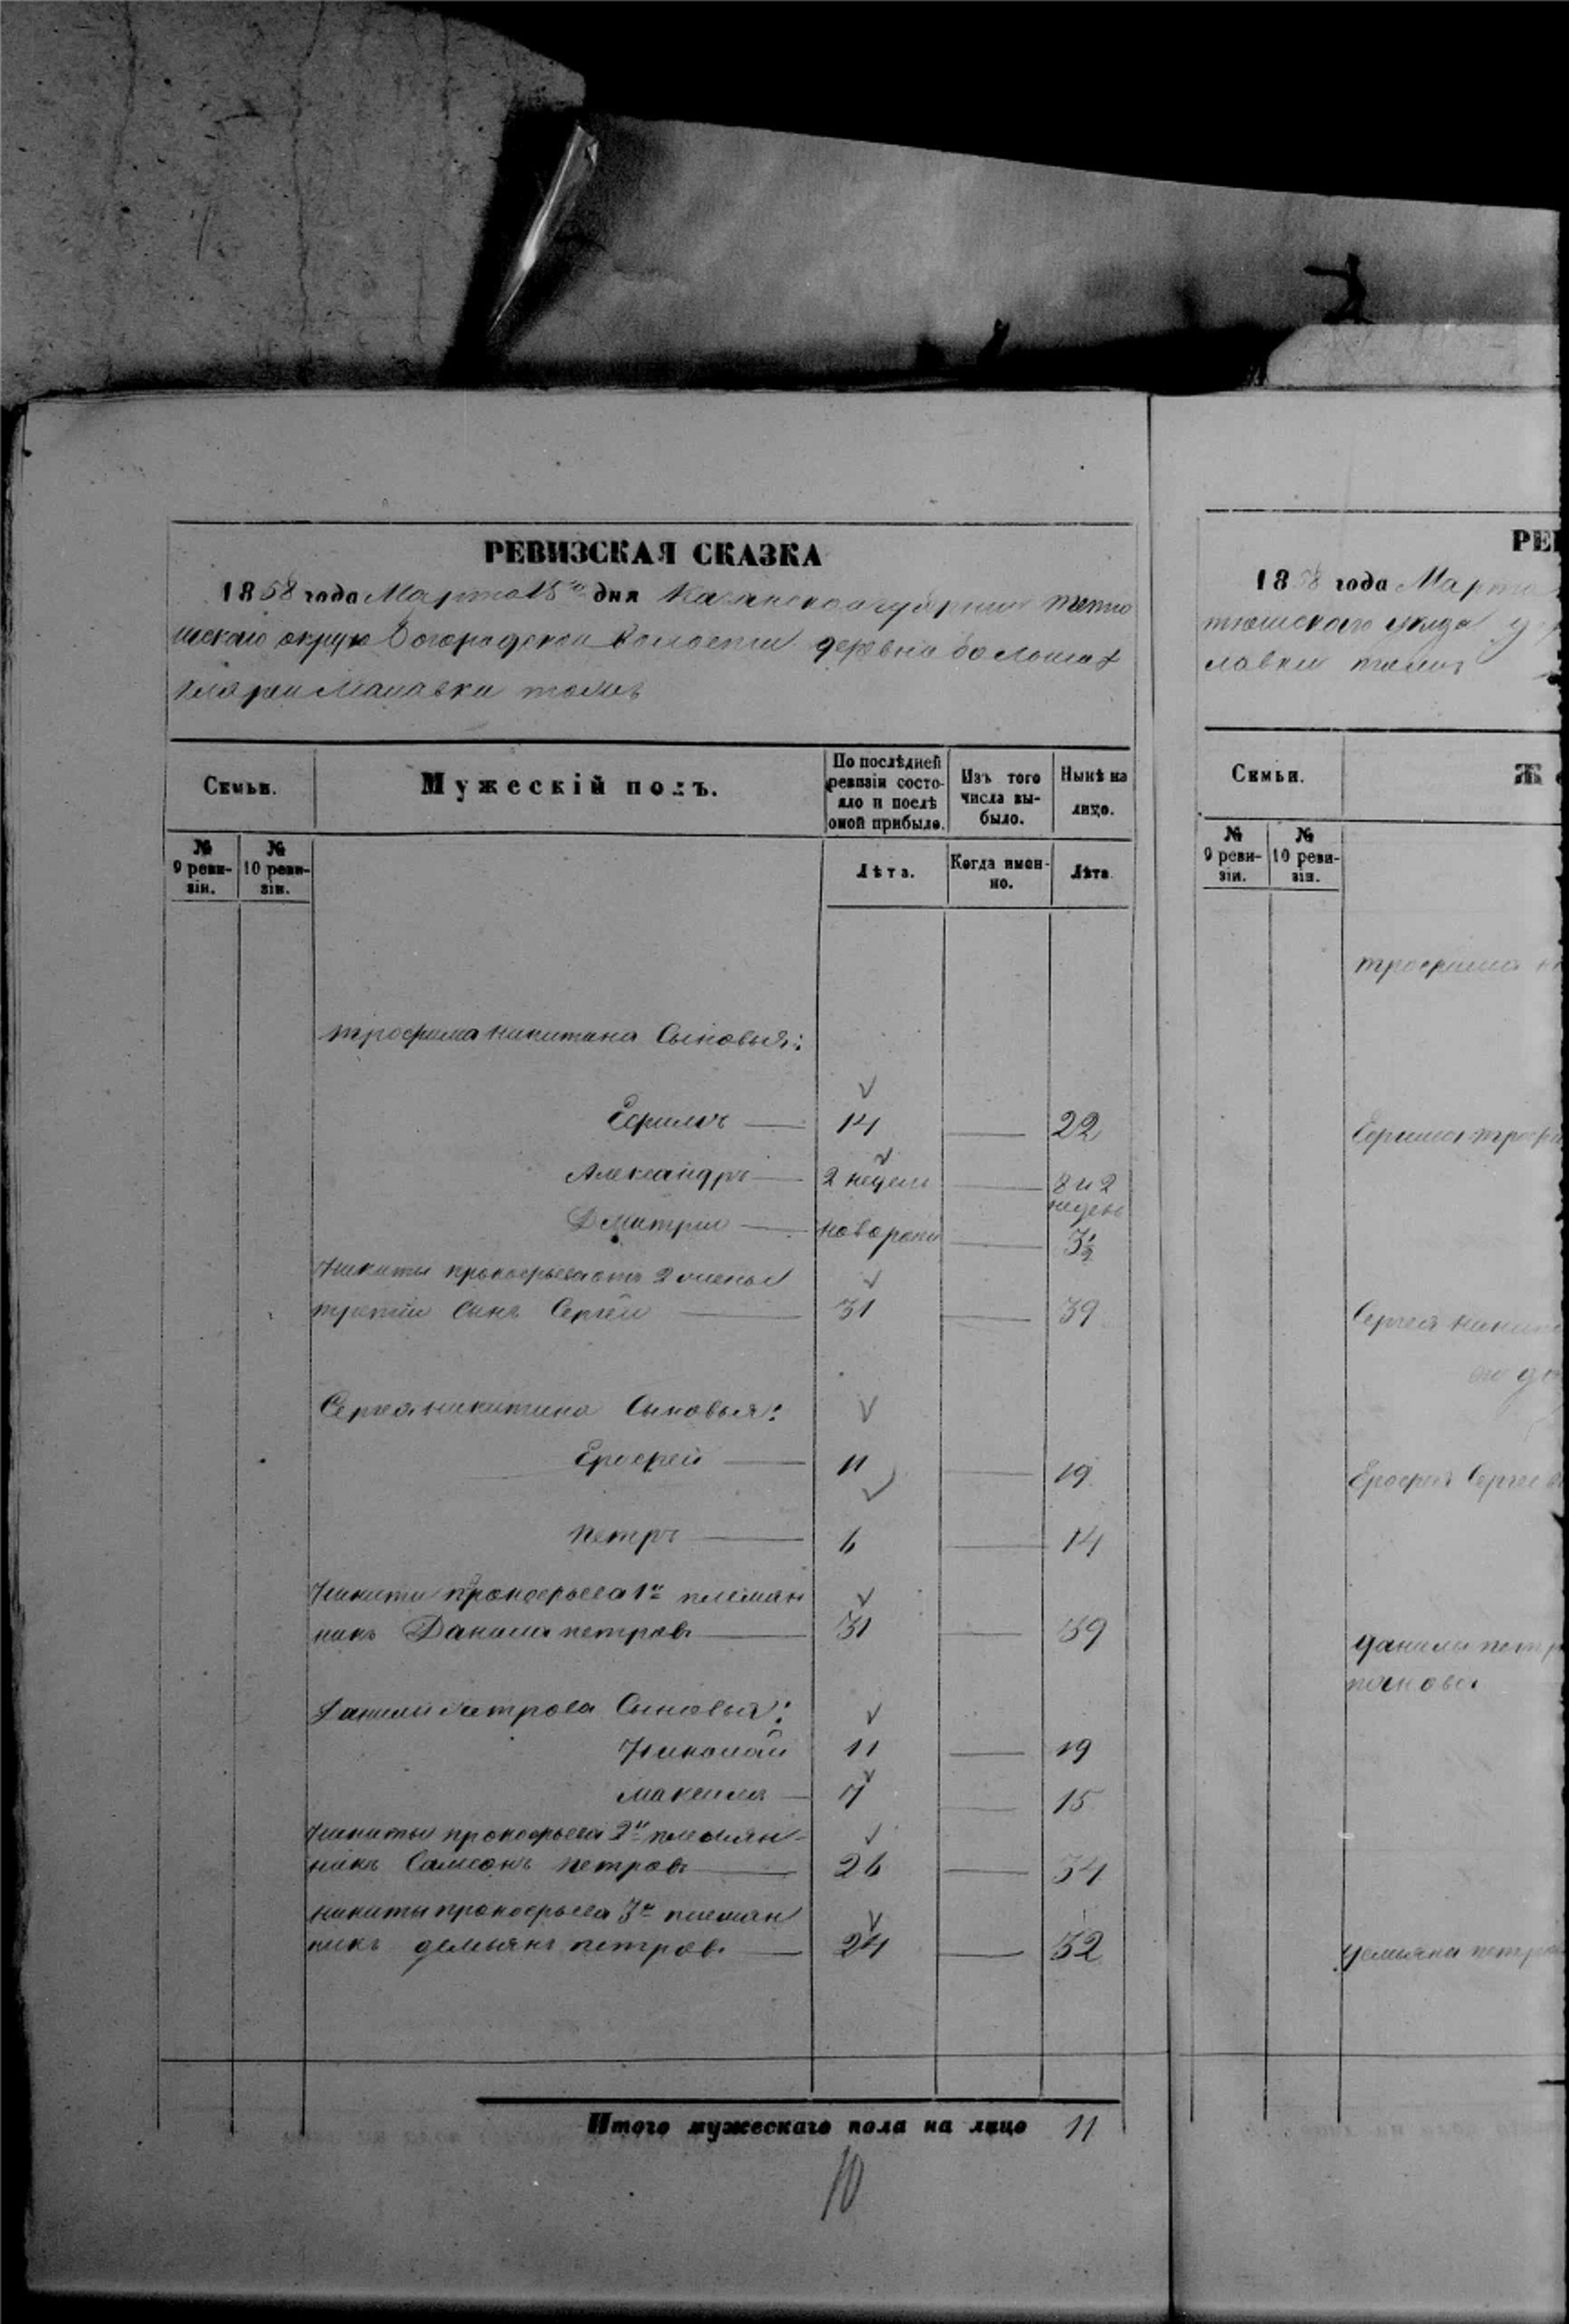 РЕВИЗСКАЯ СКАЗКА
1858 года Марта 15го дня Казанской губернии тетю
шскаго округа Богородской волости деревни большая
Маиавки тожъ
Семьи.
Мужескій полъ.
По послѣдней ревизіи состояло и послѣ оной прибыло.
Изъ того числа выбыло.
Нынѣ на лицо.
№ 9 ревизіи.
№ 10 ревизіи.
Лѣта.
Когда именно.
Лѣта
трофима никитина Сыновья:
Ефимъ 14 22
Александръ 2 недели 8 и 2 недели
Дмитрий новорож 3½
Никиты прокофьева отъ 2 жены
третий сынъ Сергей 31 39
Сергея никитина Сыновья:
Ерофей 11 19
петръ 6 14
Никиты прокофьева 1й племян
никъ Данила петровъ 31 39
Данилы петрова Сыновья:
Николай 11 19
максимъ 7 15
никиты прокофьева 2й племян-
никъ Самсонъ петровъ 26 34
никиты прокофьева 3й племян
никъ демьянъ петровъ 24 32
Итого мужескаго пола на лицо 11
10
РЕВ
1858 года Марта
тюшскаго уезда
лавки тожъ
Семьи.
Ж
№ 9 ревизіи.
№ 10 ревизіи.
трофима
Ефима трофи
Сергея никит
его до
Ерофея Сергеев
данилы петр
демьяна петро